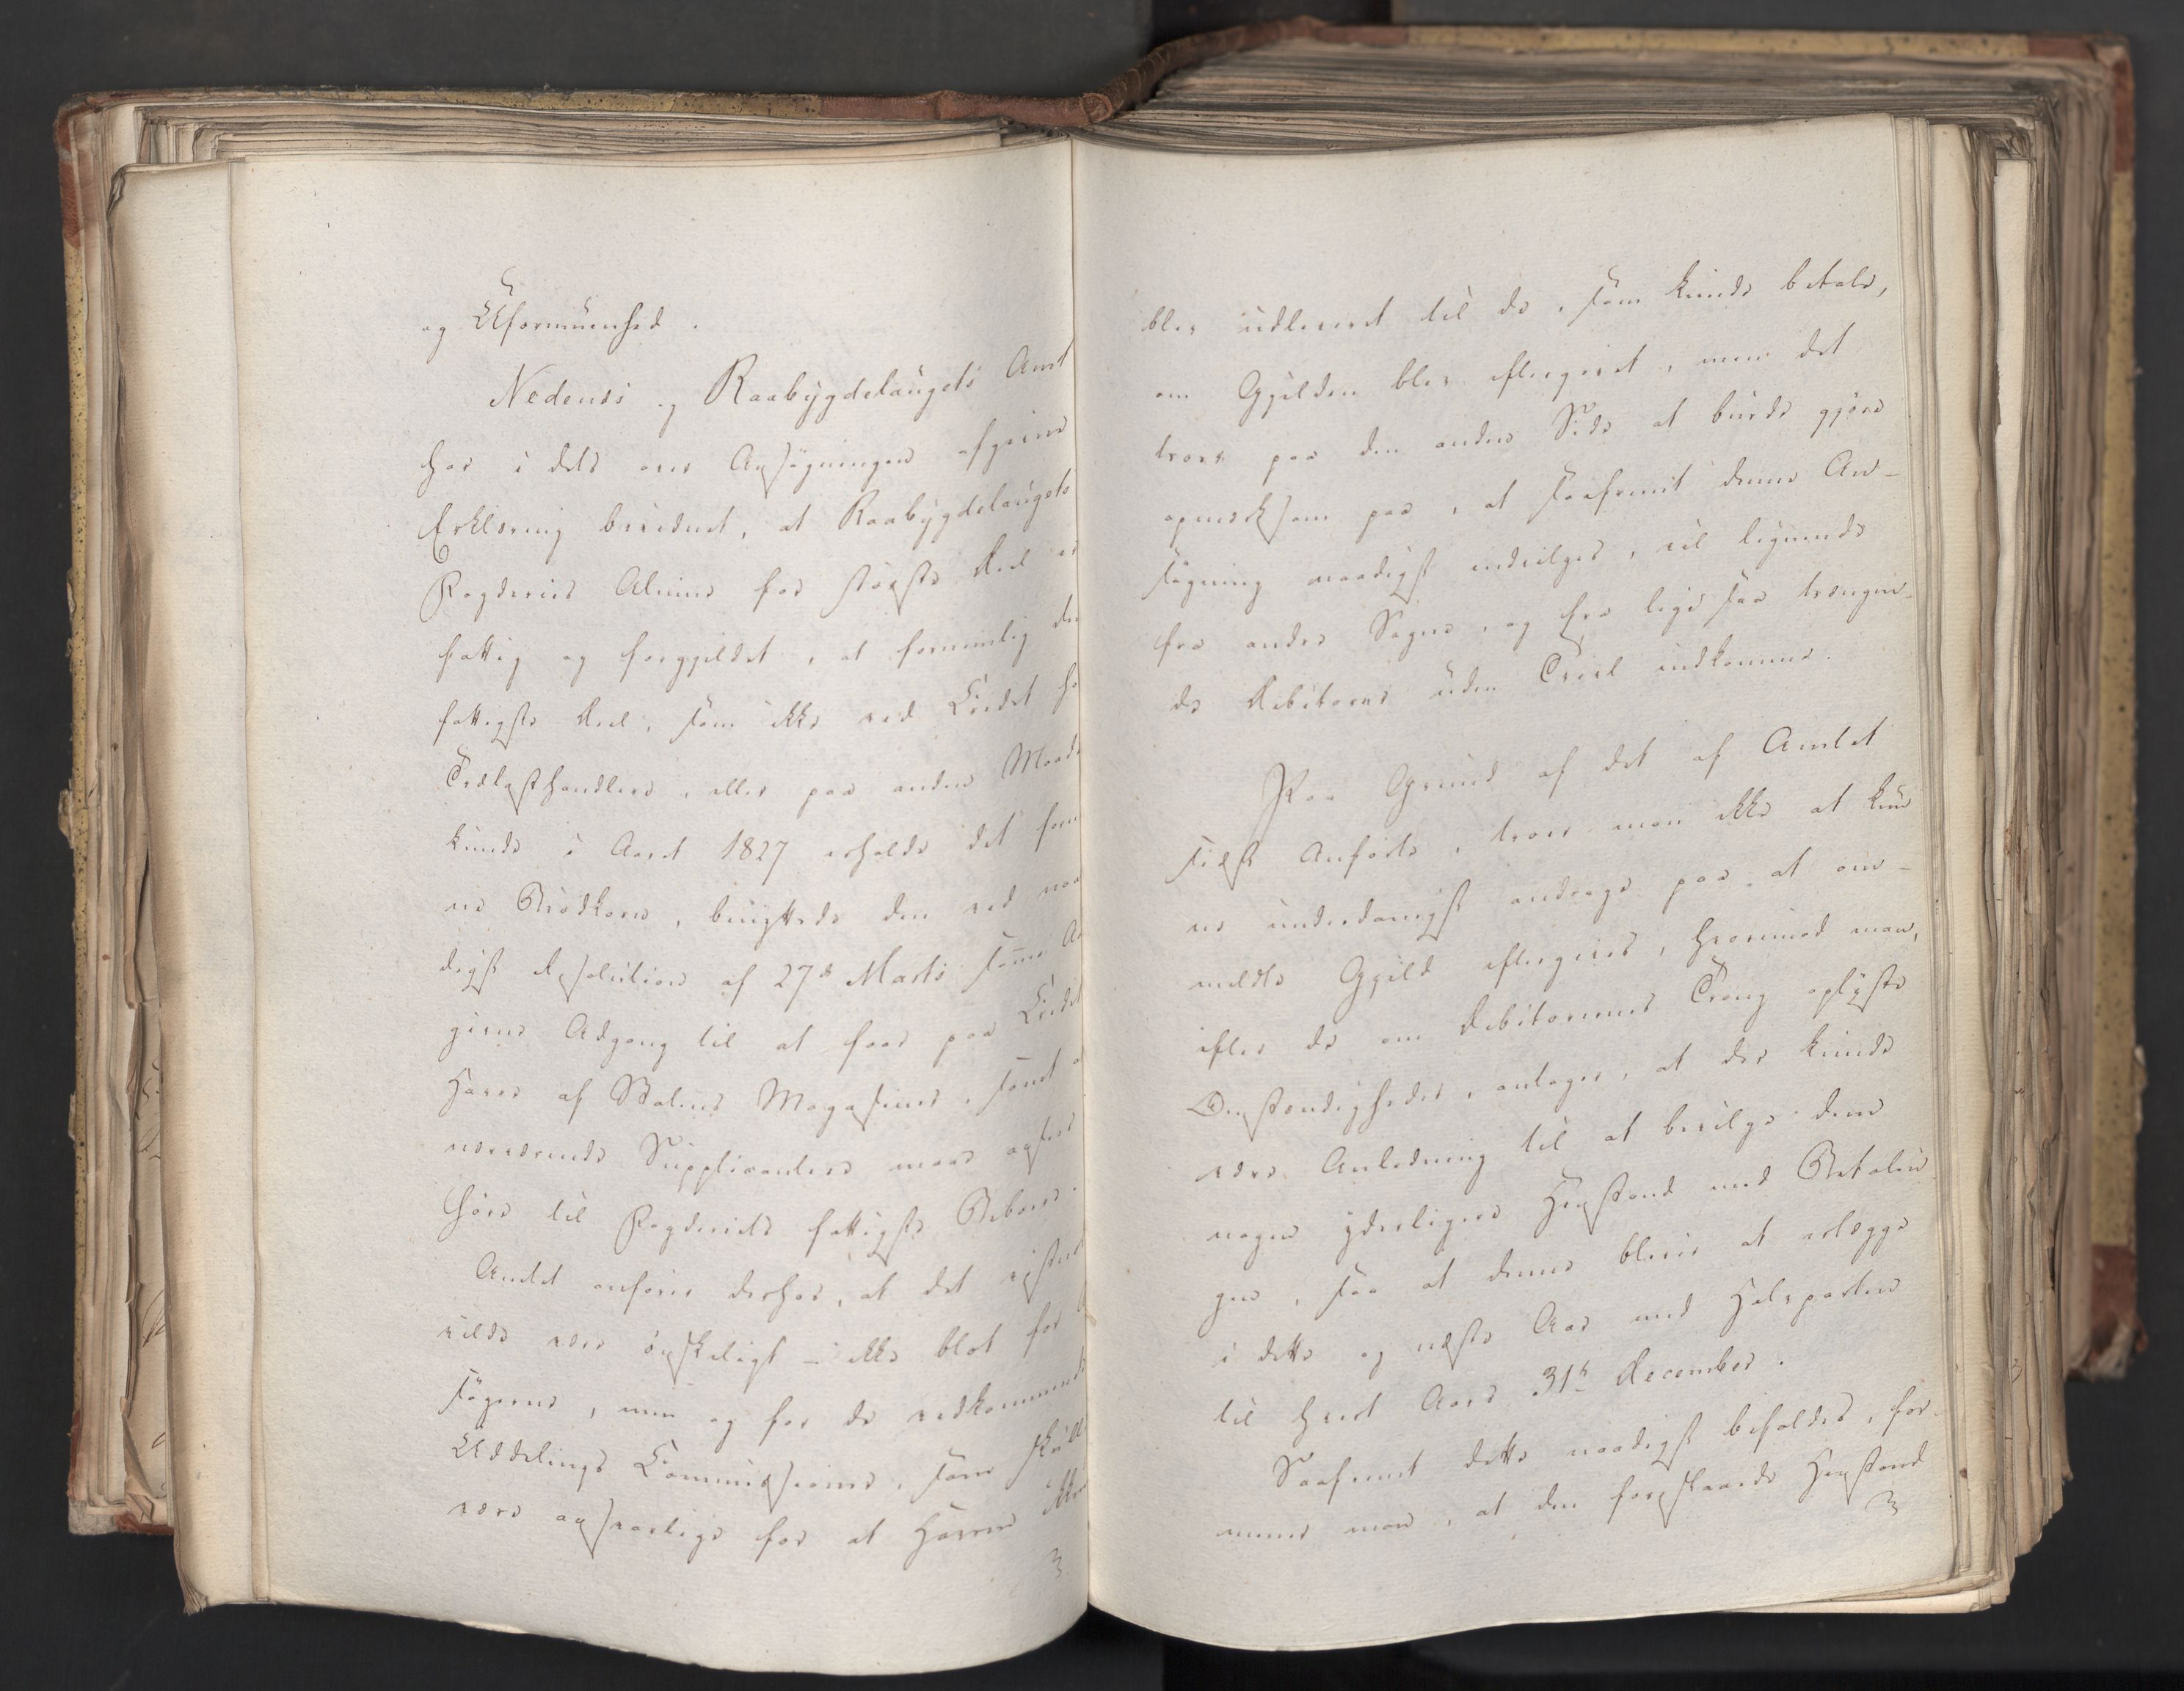 og Uformuenhed.
Nedenæs og Raabygdelaugets Amt
har i dets over Ansøgningen afgivne
Erklæring bevidnet, at Raabygdelaugets
Fogderies Almue for største Deel er
fattig og forgjeldet, at fornemlig den
fattigste Deel, som ikke ved Credit hos
Trælasthandlere, eller paa anden Maade
kunde i Aaret 1827 erholde det forn
ne Brødkorn, benyttede den ved naa
digst Resolution af 27de Marts samme Aar
givne Adgang til at faae paa Credit
Havre af Statens Magasiner, samt at
nærværende Supplicantere maae ansees
høre til Fogderiets fattigste Beboere.
Amtet anfører derhos, at det vistnok
vilde være ønskeligt – ikke blot for
søgerne, men og for de vedkommende
Uddelings Commissioner, som skulle
være ansvarlige for at Havren ikke
blev udleveret til de, som kunde betale,
om Gjelden blev eftergivet, men det
troer paa den anden Side at burde gjøre
opmærksom paa, at saafremt denne An-
søgning naadigst indvilges, vil lignende
fra andre Sogne, og fra lige saa trængen-
de Debitorer uden Tvivl indkomme.
Paa Grund af det af Amtet
sidst Anførte, troer man ikke at kun
ne underdanigst andrage paa at om-
meldte Gjeld eftergives, hvorimod man,
efter de om Debitorernes Trang oplyste
Omstændigheder, antager, at der kunde
være Anledning til at bevilge dem
nogen yderligere Henstand med Betalin
gen, saa at denne bliver at erlægge
i dette og næste Aar med Halvparten
til hvert Aars 31te December.
Saafremt dette naadigst bifaldes, for-
mener man, at den foreslaaede Henstand